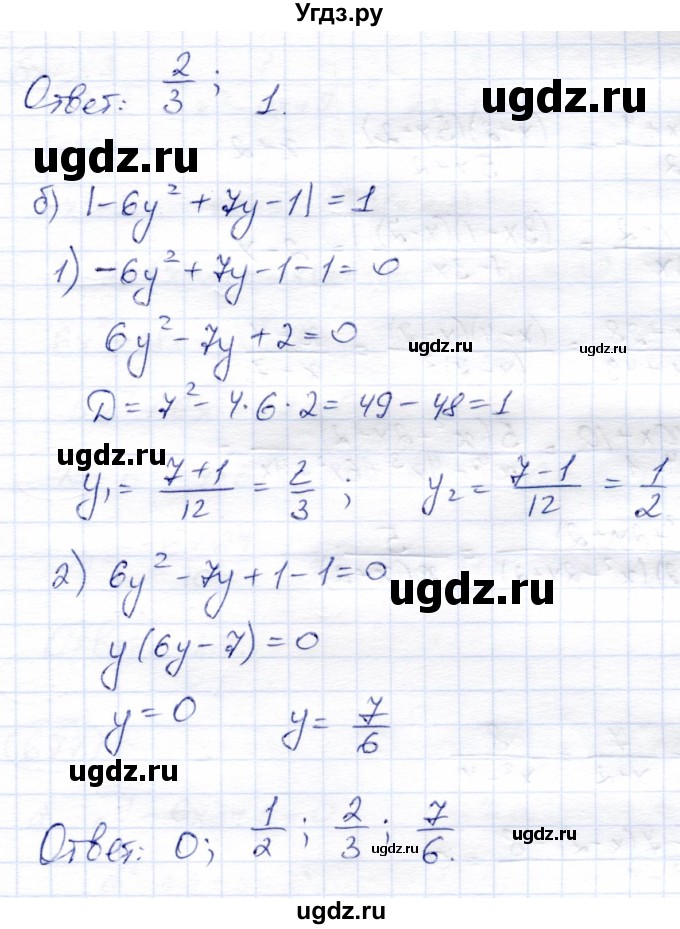 Угдз.ру
Ответ: 2/3; 1.
ugdz.ru
ugdz.ru
б) |-6y² + 7y - 1| = 1
1) -6y² + 7y - 1 - 1 = 0
6y² - 7y + 2 = 0
ugdz.ru
ugdz.ru
D = 7² - 4·6·2 = 49 - 48 = 1
ugdz.ru
y₁ = (7+1)/12 = 2/3; y₂ = (7-1)/12 = 1/2
2) 6y² - 7y + 1 - 1 = 0
ugdz.ru
y(6y - 7) = 0
y = 0 y = 7/6
ugdz.ru
Ответ: 0; 1/2; 2/3; 7/6.
ugdz.ru
ugdz.ru
ugdz.ru